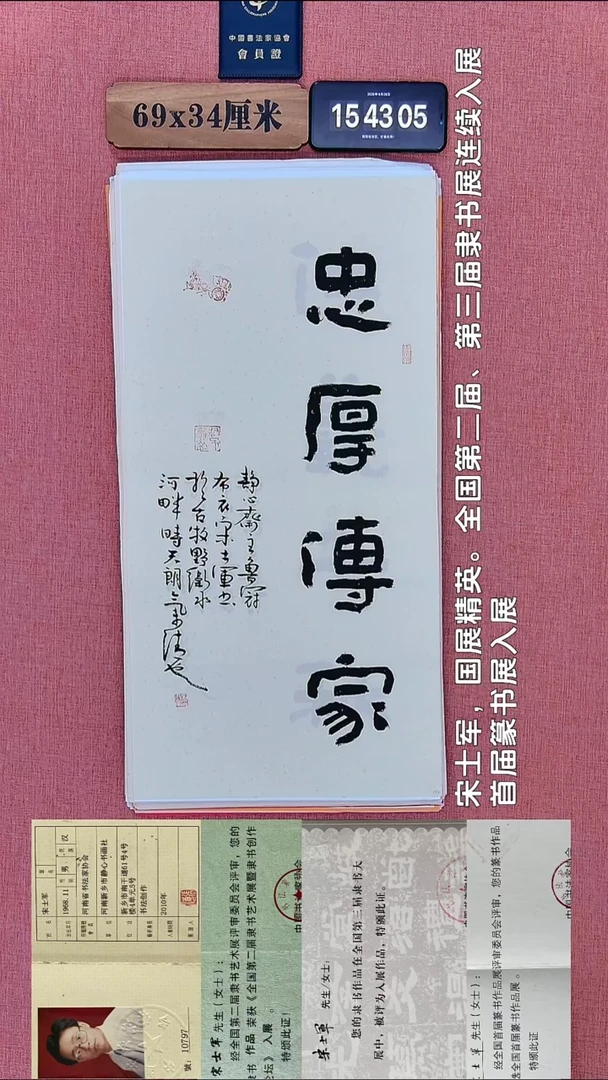 中國書法家協會
會員證
69x34厘米
15 43 05
忠厚傳家
靜心齋主魯冠
布衣宋士軍書
於古牧野衛水
河畔時天朗氣清也
宋士军，国展精英。全国第二届、第三届隶书展连续入展
首届篆书展入展
宋士军
男
汉
1968.11
河南省书法家协会
河南新乡市静心书画社
新乡市南干道61号4号
楼4单元5号
书法创作
2010年
號：10797
宋士军 先生（女士）：
经全国第二届隶书艺术展评审委员会评审，您的
隶书 作品 荣获《全国第二届隶书艺术展暨隶书创作
论坛》入展 。
特颁此证！
宋士军 先生/女士：
您的隶书作品在全国第三届隶书大
展中，被评为入展作品，特颁此证。
士军 先生（女士）：
经全国首届篆书作品展评审委员会评审，您的篆书作品
全国首届篆书作品展 。
特颁此证